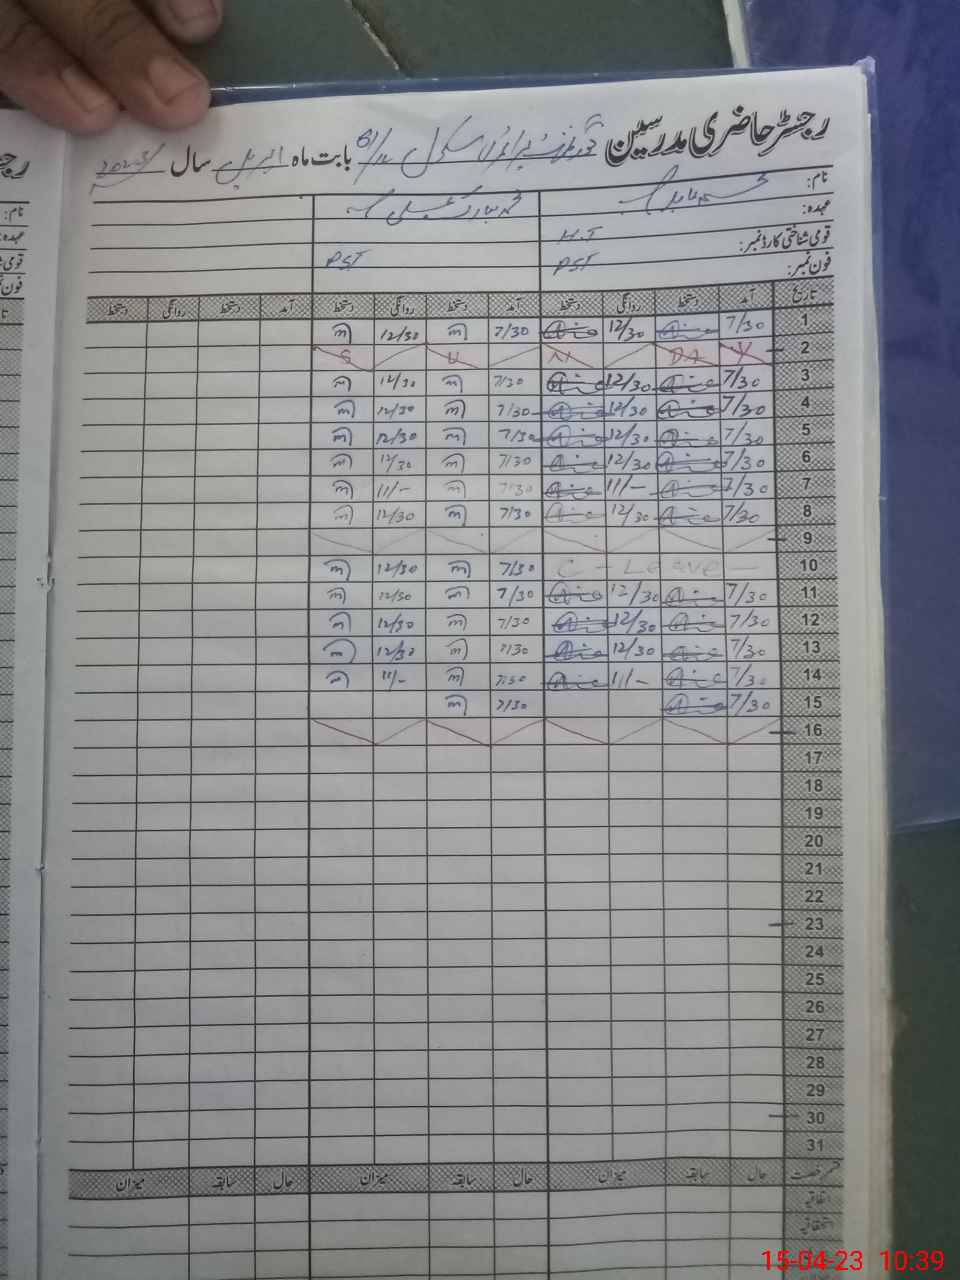 رجسٹر حاضری مدرسین گورنمنٹ پرائمری سکول بابت ماہ اپریل سال 2023
نام:
عہدہ: H.T
قومی شناختی کارڈ نمبر: PST PST
فون نمبر:
تاریخ آمد دستخط روانگی دستخط آمد دستخط روانگی دستخط آمد دستخط روانگی دستخط
1 7/30 12/30 7/30 12/30
2 S U N DA Y
3 7/30 12/30 7/30 12/30
4 7/30 12/30 7/30 12/30
5 7/30 12/30 7/30 12/30
6 7/30 12/30 7/30 12/30
7 7/30 11/- 7/30 11/-
8 7/30 12/30 7/30 12/30
9
10 C - Leave - 7/30 12/30
11 7/30 12/30 7/30 12/30
12 7/30 12/30 7/30 12/30
13 7/30 12/30 7/30 12/30
14 7/30 11/- 7/30 11/-
15 7/30 7/30
16
17
18
19
20
21
22
23
24
25
26
27
28
29
30
31
قسم رخصت حال سابقہ میزان حال سابقہ میزان حال سابقہ میزان
اتفاقیہ
استحقاقیہ
15-04-23 10:39